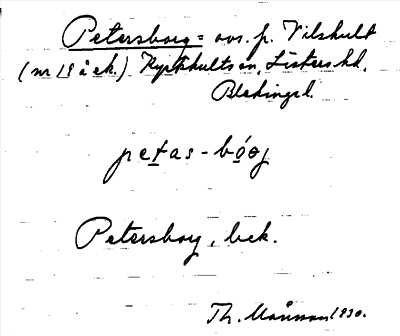 Petersborg = avs. fr. Vilshult
(nr 19 å ek.) Kyrkhults sn, Listers hd,
Blekinge l.
petas - bóəj
Petersborg, bek.
Th. Månsson 1930.